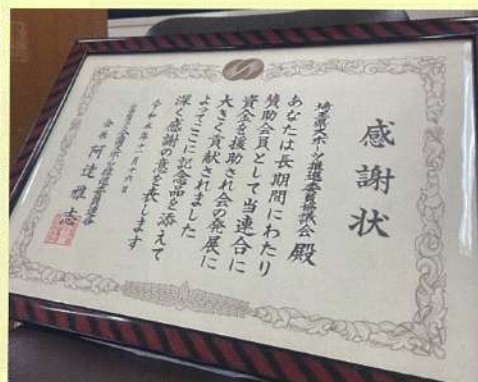 感謝状
埼玉県スポーツ推進委員協議会 殿
あなたは長期間にわたり
賛助会員として当連合に
資金を援助され会の発展に
大きく貢献されました
よってここに記念品を添えて
深く感謝の意を表します
令和五年十一月十六日
会長 阿達雅志